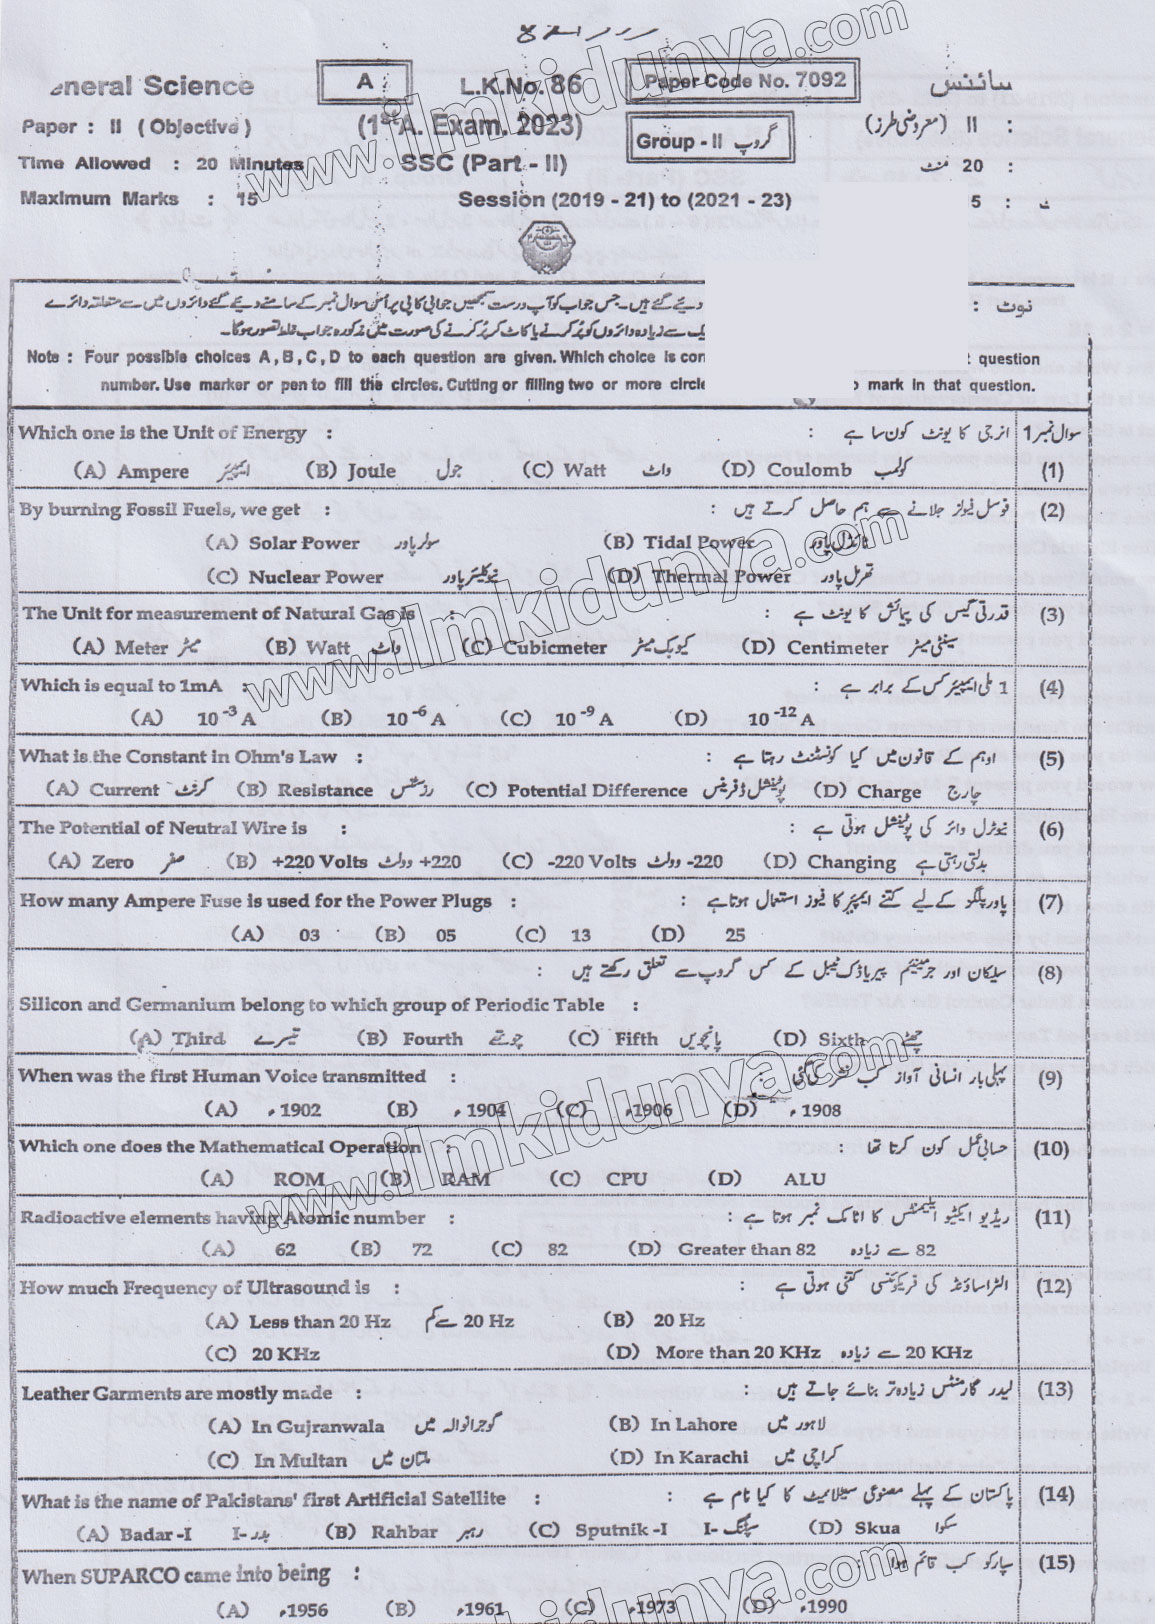 eneral Science A L.K.No. 86 Paper Code No. 7092 سائنس
Paper : II (Objective) (1st A. Exam. 2023) Group - II گروپ II (معروضی طرز) :
Time Allowed : 20 Minutes SSC (Part - II) 20 منٹ :
Maximum Marks : 15 Session (2019 - 21) to (2021 - 23) 5 :
نوٹ : دیئے گئے ہیں۔ جس جواب کو آپ درست سمجھیں جوابی کاپی پر اُس سوال نمبر کے سامنے دیئے گئے دائروں میں سے متعلقہ دائرے
ک سے زیادہ دائروں کو پُر کرنے یا کاٹ کر پُر کرنے کی صورت میں مذکورہ جواب غلط تصور ہوگا۔
Note : Four possible choices A , B , C , D to each question are given. Which choice is cor t question
number. Use marker or pen to fill the circles. Cutting or filling two or more circle o mark in that question.
Which one is the Unit of Energy : انرجی کا یونٹ کون سا ہے : سوال نمبر 1
(A) Ampere ایمپیئر (B) Joule جول (C) Watt واٹ (D) Coulomb کولمب (1)
By burning Fossil Fuels, we get : فوسل فیولز جلانے سے ہم حاصل کرتے ہیں : (2)
(A) Solar Power سولر پاور (B) Tidal Power ٹائڈل پاور
(C) Nuclear Power نیوکلیئر پاور (D) Thermal Power تھرمل پاور
The Unit for measurement of Natural Gas is : قدرتی گیس کی پیمائش کا یونٹ ہے : (3)
(A) Meter میٹر (B) Watt واٹ (C) Cubicmeter کیوبک میٹر (D) Centimeter سینٹی میٹر
Which is equal to 1mA : 1 ملی ایمپیئر کس کے برابر ہے : (4)
(A) 10⁻³ A (B) 10⁻⁶ A (C) 10⁻⁹ A (D) 10⁻¹² A
What is the Constant in Ohm's Law : اوہم کے قانون میں کیا کونسٹنٹ رہتا ہے : (5)
(A) Current کرنٹ (B) Resistance رزسٹنس (C) Potential Difference پوٹینشل ڈفرینس (D) Charge چارج
The Potential of Neutral Wire is : نیوٹرل وائر کی پوٹینشل ہوتی ہے : (6)
(A) Zero صفر (B) +220 Volts +220 وولٹ (C) -220 Volts -220 وولٹ (D) Changing بدلتی رہتی ہے
How many Ampere Fuse is used for the Power Plugs : پاور پلگز کے لیے کتنے ایمپیئر کا فیوز استعمال ہوتا ہے : (7)
(A) 03 (B) 05 (C) 13 (D) 25
سلیکان اور جرمینیم پیریاڈک ٹیبل کے کس گروپ سے تعلق رکھتے ہیں : (8)
Silicon and Germanium belong to which group of Periodic Table :
(A) Third تیسرے (B) Fourth چوتھے (C) Fifth پانچویں (D) Sixth چھٹے
When was the first Human Voice transmitted : پہلی بار انسانی آواز کب نشر کی گئی : (9)
(A) 1902ء (B) 1904ء (C) 1906ء (D) 1908ء
Which one does the Mathematical Operation : حسابی عمل کون کرتا تھا : (10)
(A) ROM (B) RAM (C) CPU (D) ALU
Radioactive elements having Atomic number : ریڈیو ایکٹیو ایلیمنٹس کا اٹامک نمبر ہوتا ہے : (11)
(A) 62 (B) 72 (C) 82 (D) Greater than 82 82 سے زیادہ
How much Frequency of Ultrasound is : الٹراساؤنڈ کی فریکوئنسی کتنی ہوتی ہے : (12)
(A) Less than 20 Hz 20 Hz سے کم (B) 20 Hz
(C) 20 KHz (D) More than 20 KHz 20 KHz سے زیادہ
Leather Garments are mostly made : لیدر گارمنٹس زیادہ تر بنائے جاتے ہیں : (13)
(A) In Gujranwala گوجرانوالہ میں (B) In Lahore لاہور میں
(C) In Multan ملتان میں (D) In Karachi کراچی میں
What is the name of Pakistans' first Artificial Satellite : پاکستان کے پہلے مصنوعی سیٹلائیٹ کا کیا نام ہے : (14)
(A) Badar -I بدر -I (B) Rahbar رہبر (C) Sputnik -I سپٹنک -I (D) Skua سکوا
When SUPARCO came into being : سپارکو کب قائم ہوا : (15)
(A) 1956ء (B) 1961ء (C) 1973ء (D) 1990ء
www.ilmkidunya.com
www.ilmkidunya.com
www.ilmkidunya.com
www.ilmkidunya.com
www.ilmkidunya.com